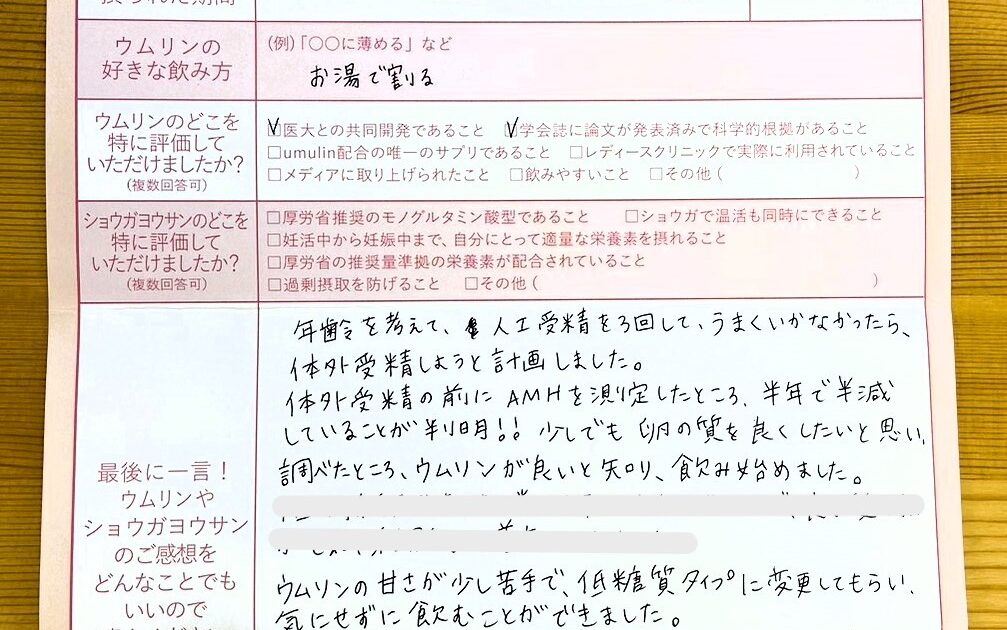 ウムリンの
好きな飲み方
(例)「〇〇に薄める」など
お湯で割る
ウムリンのどこを
特に評価して
いただけましたか?
(複数回答可)
☑医大との共同開発であること ☑学会誌に論文が発表済みで科学的根拠があること
□umulin配合の唯一のサプリであること □レディースクリニックで実際に利用されていること
□メディアに取り上げられたこと □飲みやすいこと □その他( )
ショウガヨウサンのどこを
特に評価して
いただけましたか?
(複数回答可)
□厚労省推奨のモノグルタミン酸型であること □ショウガで温活も同時にできること
□妊活中から妊娠中まで、自分にとって適量な栄養素を摂れること
□厚労省の推奨量準拠の栄養素が配合されていること
□過剰摂取を防げること □その他( )
最後に一言!
ウムリンや
ショウガヨウサン
のご感想を
どんなことでも
いいので
年齢を考えて、人工受精を3回して、うまくいかなかったら、
体外受精しようと計画しました。
体外受精の前にAMHを測定したところ、半年で半減
していることが判明!! 少しでも卵の質を良くしたいと思い、
調べたところ、ウムリンが良いと知り、飲み始めました。
ウムリンの甘さが少し苦手で、低糖質タイプに変更してもらい、
気にせずに飲むことができました。